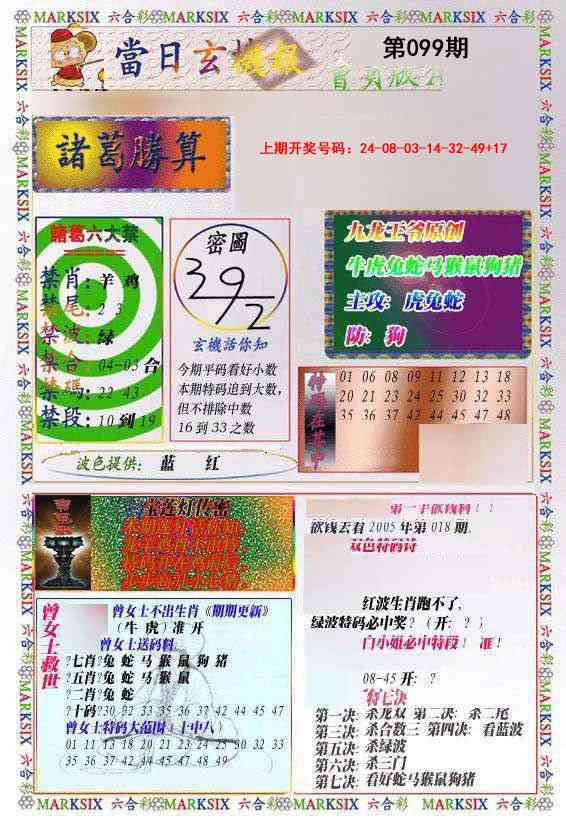 MARKSIX 六合彩 MARKSIX 六合彩 MARKSIX 六合彩 MARKSIX 六合彩
當日玄機報
第099期
諸葛勝算
上期开奖号码：24-08-03-14-32-49+17
諸葛六大禁
禁肖：羊 鸡
禁尾：2 3
禁波：绿
禁合：04-03 合
禁碼：22 43
禁段：10到19
密圖
392
玄機話你知
今期平码看好小数
本期特码追到大数,
但不排除中数
16 到 33 之数
九龙王爷原创
牛虎兔蛇马猴鼠狗猪
主攻: 虎兔蛇
防: 狗
01 06 08 09 11 12 13 18
20 21 23 24 25 30 32 33
35 36 37 42 44 45 47 48
波色提供: 蓝 红
宝莲灯传密
曾女士救世
曾女士不出生肖《期期更新》
(牛 虎) 准 开
曾女士送码料
?七肖?兔 蛇 马 猴 鼠 狗 猪
?五肖?兔 蛇 马 猴 鼠
?二肖?兔 蛇
?十码?30 32 33 35 36 37 42 44 45 47
曾女士特码大范围（十中八）
01 11 13 18 20 21 23 24 25 30 32 33
35 36 37 42 44 45 47 48 49
第一手欲钱料！！
欲钱去看 2005 年第 018 期.
双色特码诗
红波生肖跑不了,
绿波特码必中奖? (开: ? )
白小姐必中特段！ 准！
08-45 开: ?
特七决
第一决: 杀龙双 第二决: 杀二尾
第三决: 杀合数三 第四决: 看蓝波
第五决: 杀绿波
第六决: 杀三门
第七决: 看好蛇马猴鼠狗猪
MARKSIX 六合彩 MARKSIX 六合彩 MARKSIX 六合彩 MARKSIX 六合彩